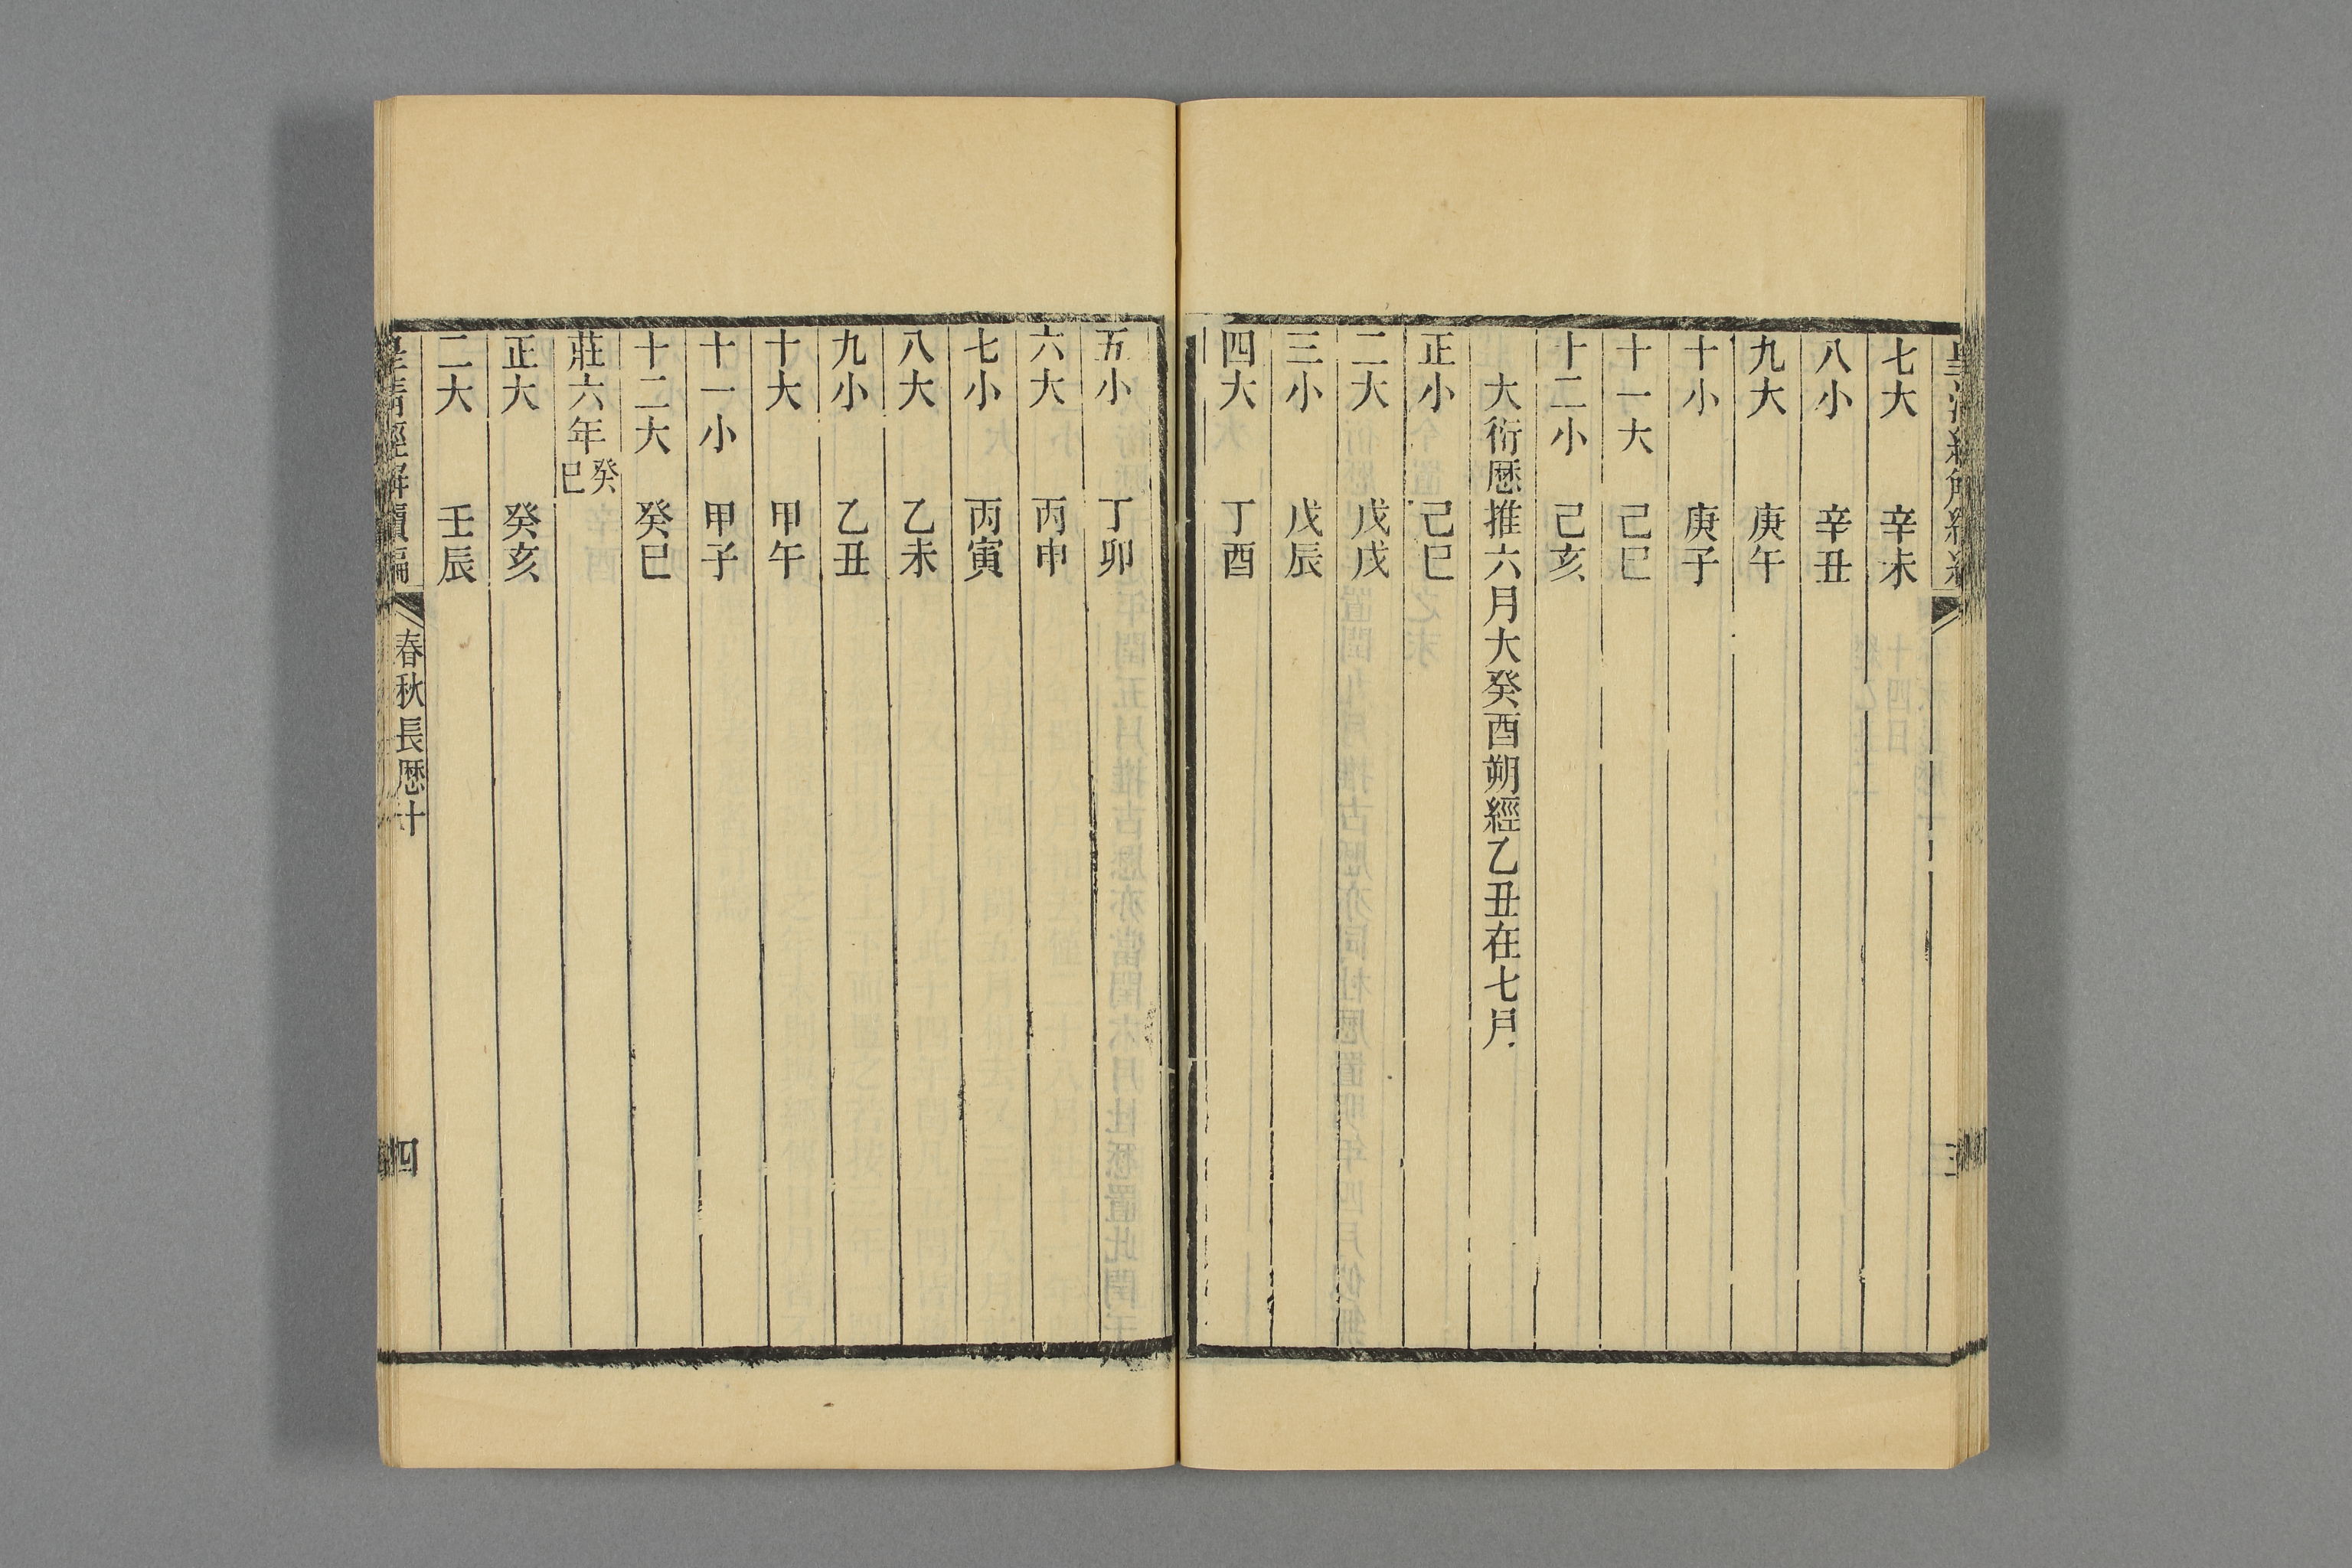 七大 辛未
八小 辛丑
九大 庚午
十小 庚子
十一大 己巳
十二小 己亥
大衍厯推六月大癸酉朔經乙丑在七月
正小 己巳
二大 戊戌
三小 戊辰
四大 丁酉
五小 丁卯
六大 丙申
七小 丙寅
八大 乙未
九小 乙丑
十大 甲午
十一小 甲子
十二大 癸巳
莊六年癸巳
正大 癸亥
二大 壬辰
皇清經解續編 春秋長厯十 四